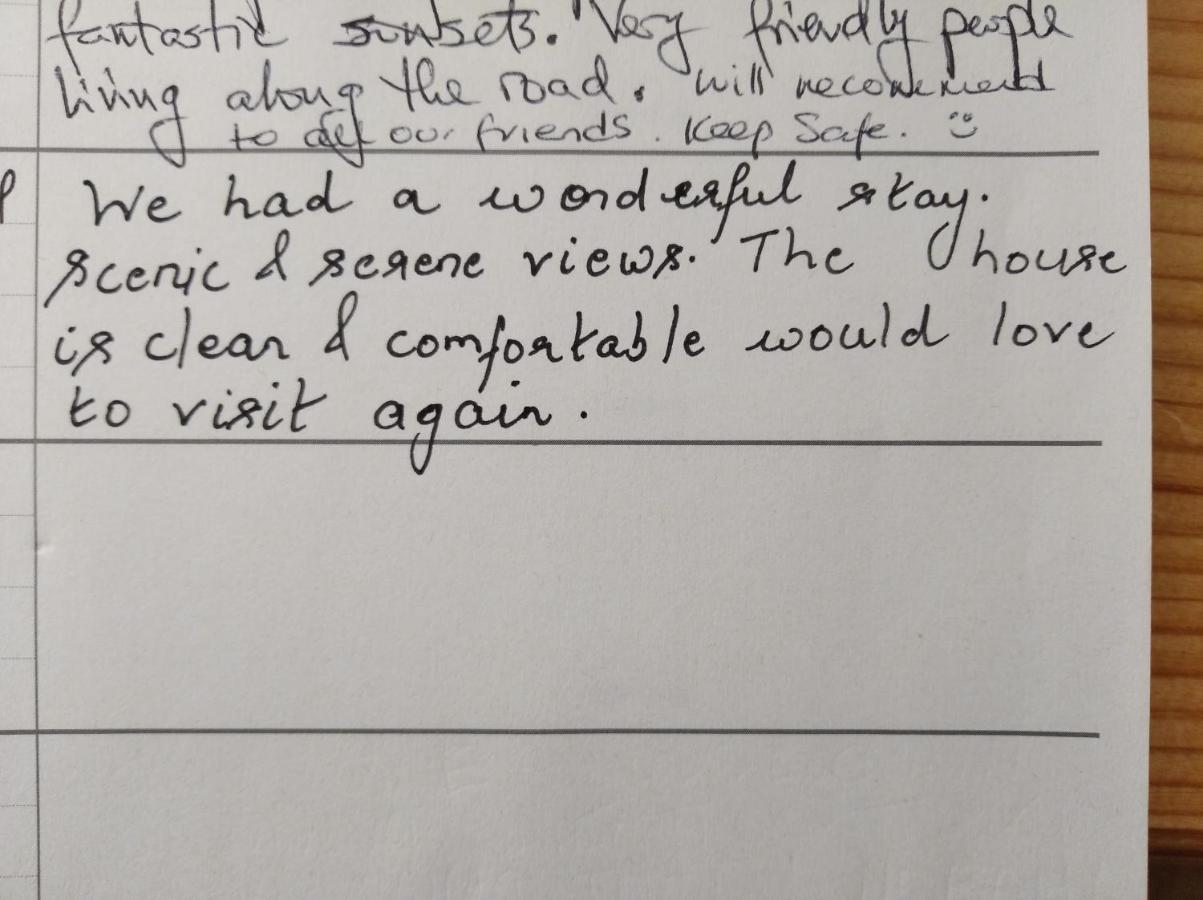 fantastic sunsets. Very friendly people
living along the road. will recommend
to all our friends. Keep Safe.
We had a wonderful stay.
scenic & serene views. The house
is clean & comfortable would love
to visit again.